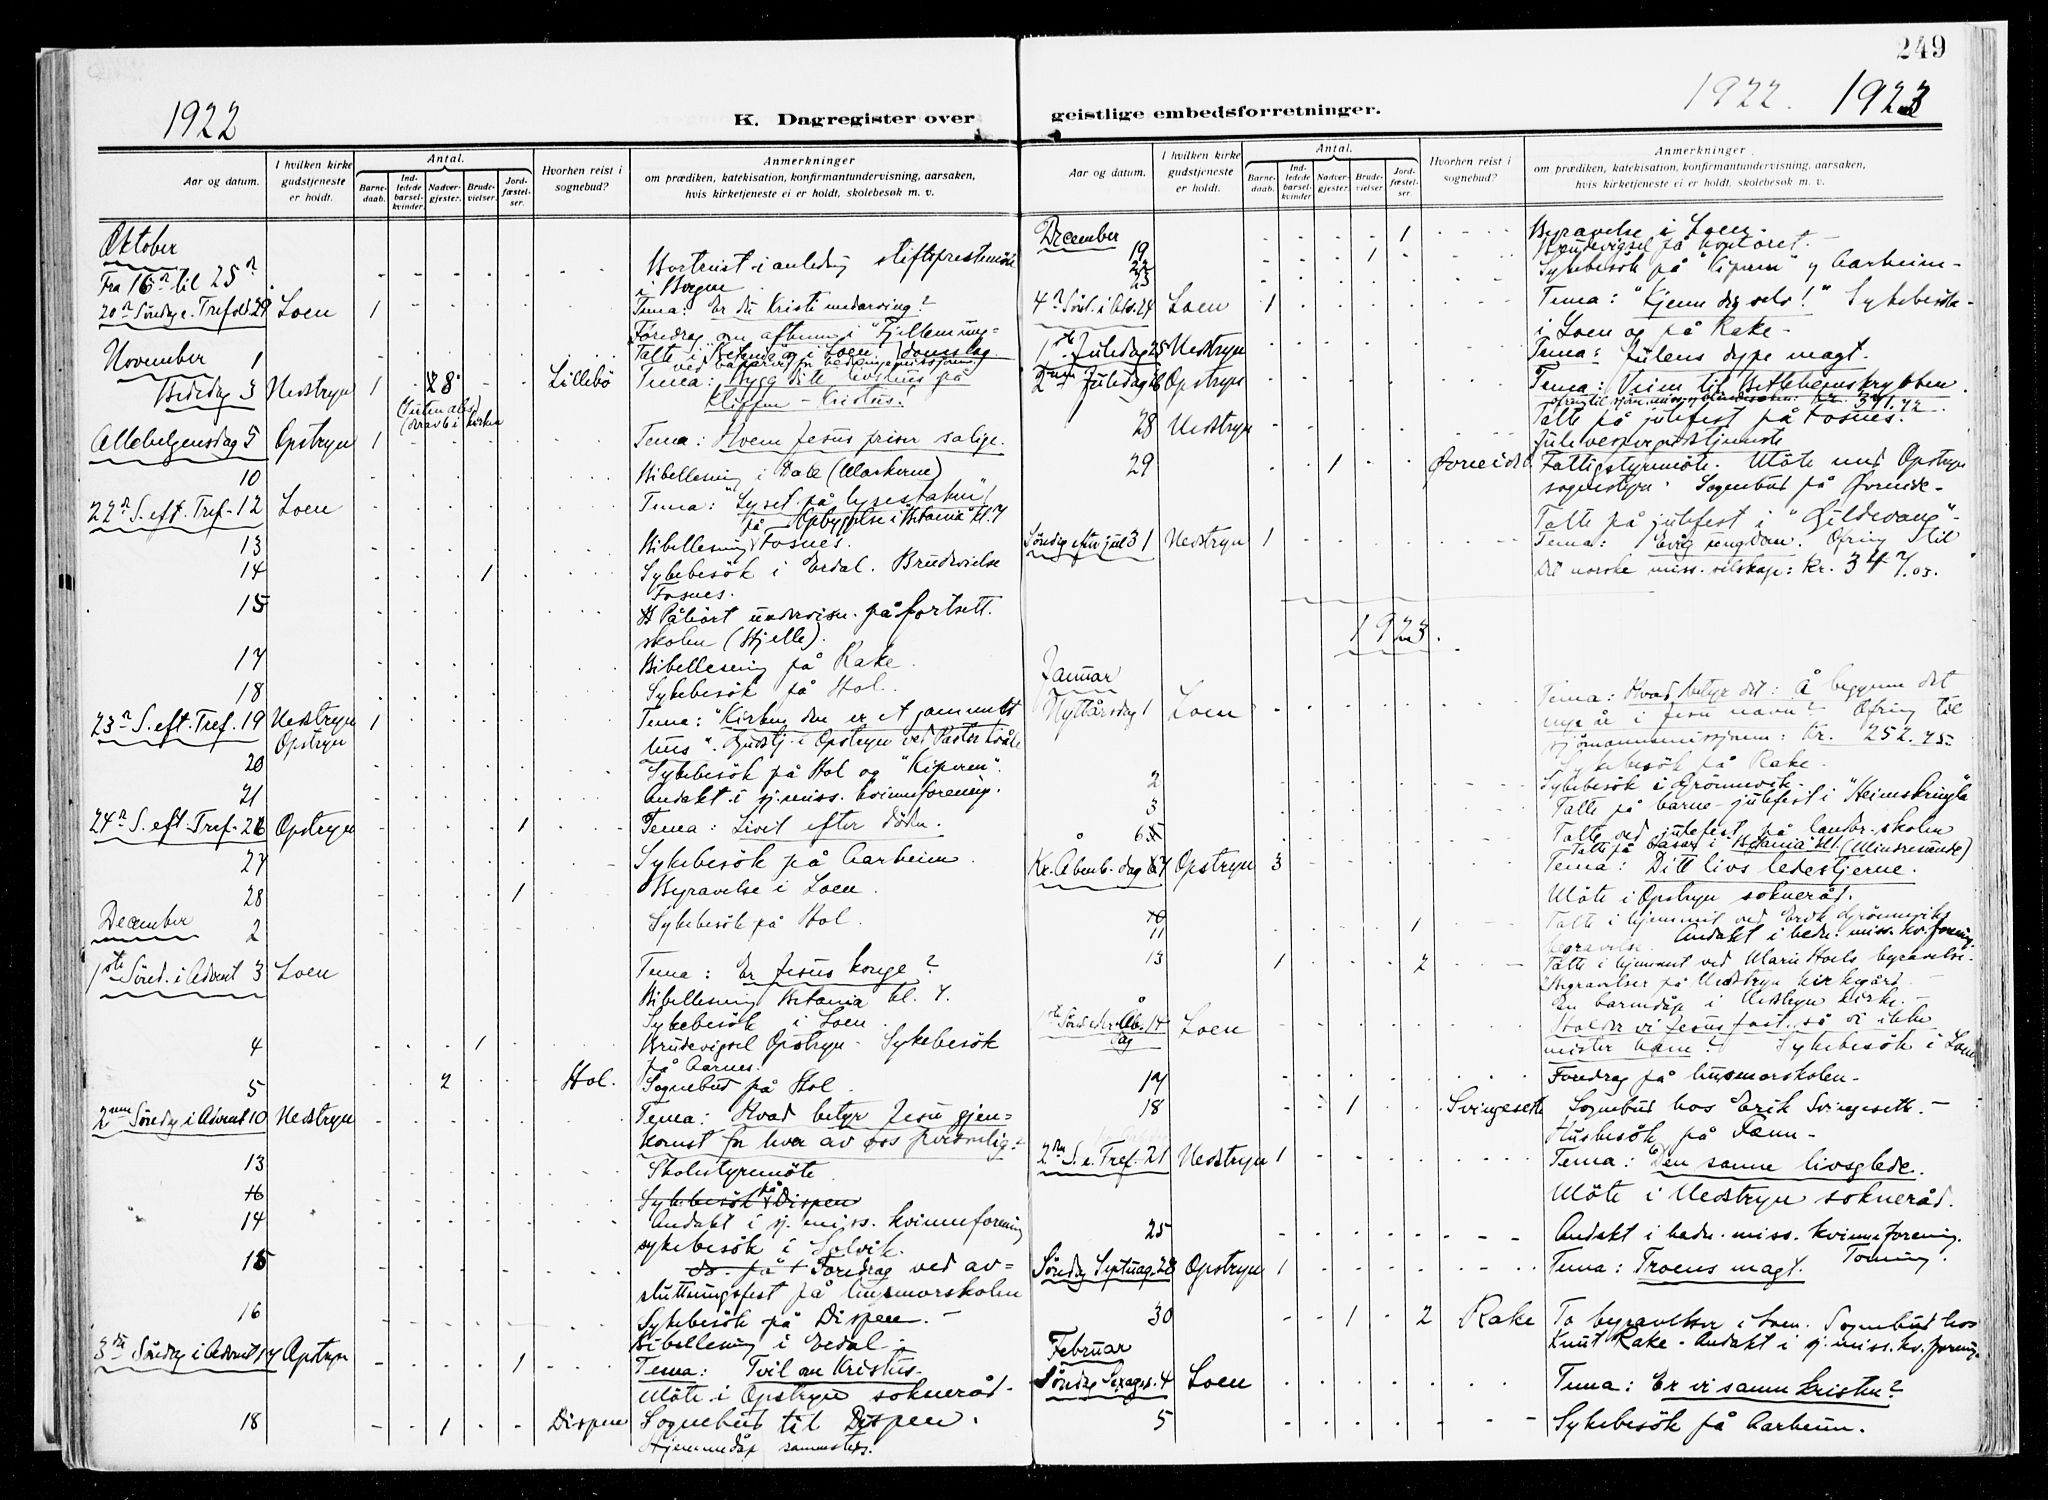 249
1922
K. Dagregister over
geistlige embedsforretninger.
1922. 1923
Aar og datum.
I hvilken kirke gudstjeneste er holdt.
Antal.
Barnedaab.
Indledede barselkvinder.
Nadvergjester.
Brudevielser.
Jordfæstelser.
Hvorhen reist i sognebud?
Anmerkninger
om prædiken, katekisation, konfirmantundervisning, aarsaken,
hvis kirketjeneste ei er holdt, skolebesøk m. v.
Oktober
Fra 16 til 25 Bortreist i anledn stiftsprestemöte
i Bergen
20 Söndag e. Tref. 29 Loen 1 Tema: Er du Kristi medarving?
Foredrag om
November 1 Talte i Betania og i Loen
Bededag 3 Nedstryn 1 8 Lillebö Tema: Bygg ditt livshus på
klippen - Kristus!
Allehelgensdag 5 Opstryn 1 Tema: Hvem Jesus priser salige.
10 Bibellesning i Dale
22 S. eft. Tref. 12 Loen Tema: "Lyset på lysestaken"
Opbyggelse i Betania kl. 7
13 Bibellesning Fosnes.
14 1 Sykebesök i Erdal. Brudevielse
Fosnes.
15 Påhört undervisn. på fortsett.
skolen (Hjelle).
17 Bibellesning på Rake.
18 Sykebesök på Hol.
23 S. eft. Tref. 19 Nedstryn 1 Tema: "Kirken den er et gammelt
Opstryn hus". Gudstj. i Opstryn ved Pastor
20 Sykebesök på Hol og "Kipren".
21 Andakt i sj. miss. kvinneforening.
24 S. eft. Tref. 26 Opstryn 1 Tema: Livet efter döden.
27 Sykebesök på Aarheim.
28 1 Begravelse i Loen.
December
2 Sykebesök på Hol.
1ste Sönd. i Advent 3 Loen Tema: Er Jesus konge?
Bibellesning Betania kl. 7.
Sykebesök i Loen.
4 1 Brudevigsel Opstryn - Sykebesök
på Aarnes.
5 2 Hol. Sognebud på Hol.
2nen Söndag i Advent 10 Nedstryn Tema: Hvad betyr Jesu gjen=
komst for hver av oss personlig?
13 Skolestyremöte
16 Sykebesök på Dispen
14 Andakt i sj. miss. kvinneforening
sykebesök i Solvik.
15 do. på Foredrag ved av=
slutningsfest på husmorskolen
16 Sykebesök på Dispen. -
Bibellesning i Erdal -
3die Söndag i Advent 17 Opstryn 1 Tema: Tvil om Kristus.
Möte i Opstryn sokneråd -
18 1 Dispen Sognebud til Dispen.
Hjemmedåp sammesteds.
Aar og datum.
I hvilken kirke gudstjeneste er holdt.
Antal.
Barnedaab.
Indledede barselkvinder
Nadvergjester.
Brudevielser.
Jordfæstelser.
Hvorhen reist i sognebud?
Anmerkninger
om prædiken, katekisation, konfirmantundervisning, aarsaken,
hvis kirketjeneste ei er holdt, skolebesøk m. v.
December 1 Begravelse i Loen.
19 1 Brudevigsel på kontoret. -
22 Sykebesök på "Kipren" og Aarheim -
23
4 Sönd. i Adv. 24 Loen 1 Tema: "Kjenn deg selv!" Sykebesök
i Loen og på Rake -
1ste Juledag 25 Nedstryn Tema: Julens dype magt.
2nen Juledag 26 Opstryn Tema: Veien til Betlehemskrybben.
kr. 391.42
Talte på julefest på Fosnes.
28 Nedstryn Julevespergudstjeneste
29 1 Övreeide Fattigstyremöte. Möte med Opstryn
sognestyre. Sognebud på Övreeide -
Talte på julefest i "Gildevang" -
Söndag efter jul 31 Nedstryn 1 Tema: Evig ungdom. Ofring til
Det norske miss. selskap: kr. 347.03.
1923.
Januar
Nyttårsdag 1 Loen Tema: Hvad betyr det: Å begynne det
nye år i Jesu navn? Ofring til
sjömannsmissjonen: Kr. 252.75.
Sykebesök på Rake.
2 Sykebesök i Grönnevik.
3 Talte på barne-julefest i "Heimskringla"
6 Talte ved julefest på landbr. skolen
Talte på basar i Betania kl. (Mindresunde)
Kr. Åbenb. dag 7 Opstryn 3 Tema: Ditt livs ledestjerne.
Möte i Opstryn sokneråd.
10
11 1 Talte i hjemmet ved Erik Grönneviks
begravelse. Andakt i hedn. miss. kv. forening.
13 1 2 Talte i hjemmet ved Marie Hols begravelse.
2 Begravelser på Nedstryn kirkegård -
En barnedåp i Nedstryn kirke. -
1ste Sönd. e. Åb. dag 14 Loen Holder vi Jesus fast så vi ikke
mister ham? Sykebesök i Loen
17 Foredrag på husmorskolen -
18 1 Svingesett Sognebud hos Erik Svingeseth. -
Husbesök på Tenn -
2nen S. e. Tref. 21 Nedstryn 1 Tema: Den sanne livsglede.
Möte i Nedstryn sokneråd.
25 Andakt i hedn. miss. kvinneforening.
Tonning.
Söndag Septuag. 28 Opstryn 1 Tema: Troens magt.
30 1 2 Rake To begravelser i Loen. Sognebud hos
Knut Rake - Andakt i sj. miss. kv. forening.
Februar
Söndag Sexages. 4 Loen Tema: Er vi sanne kristne?
5 Sykebesök på Aarheim.